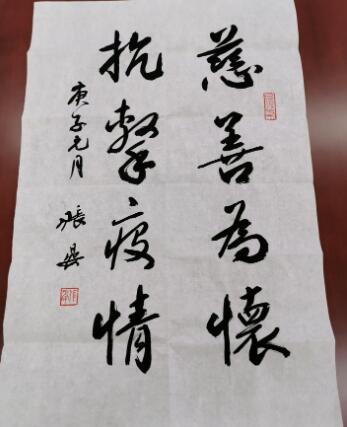 慈善為懷
抗擊疫情
庚子元月
張